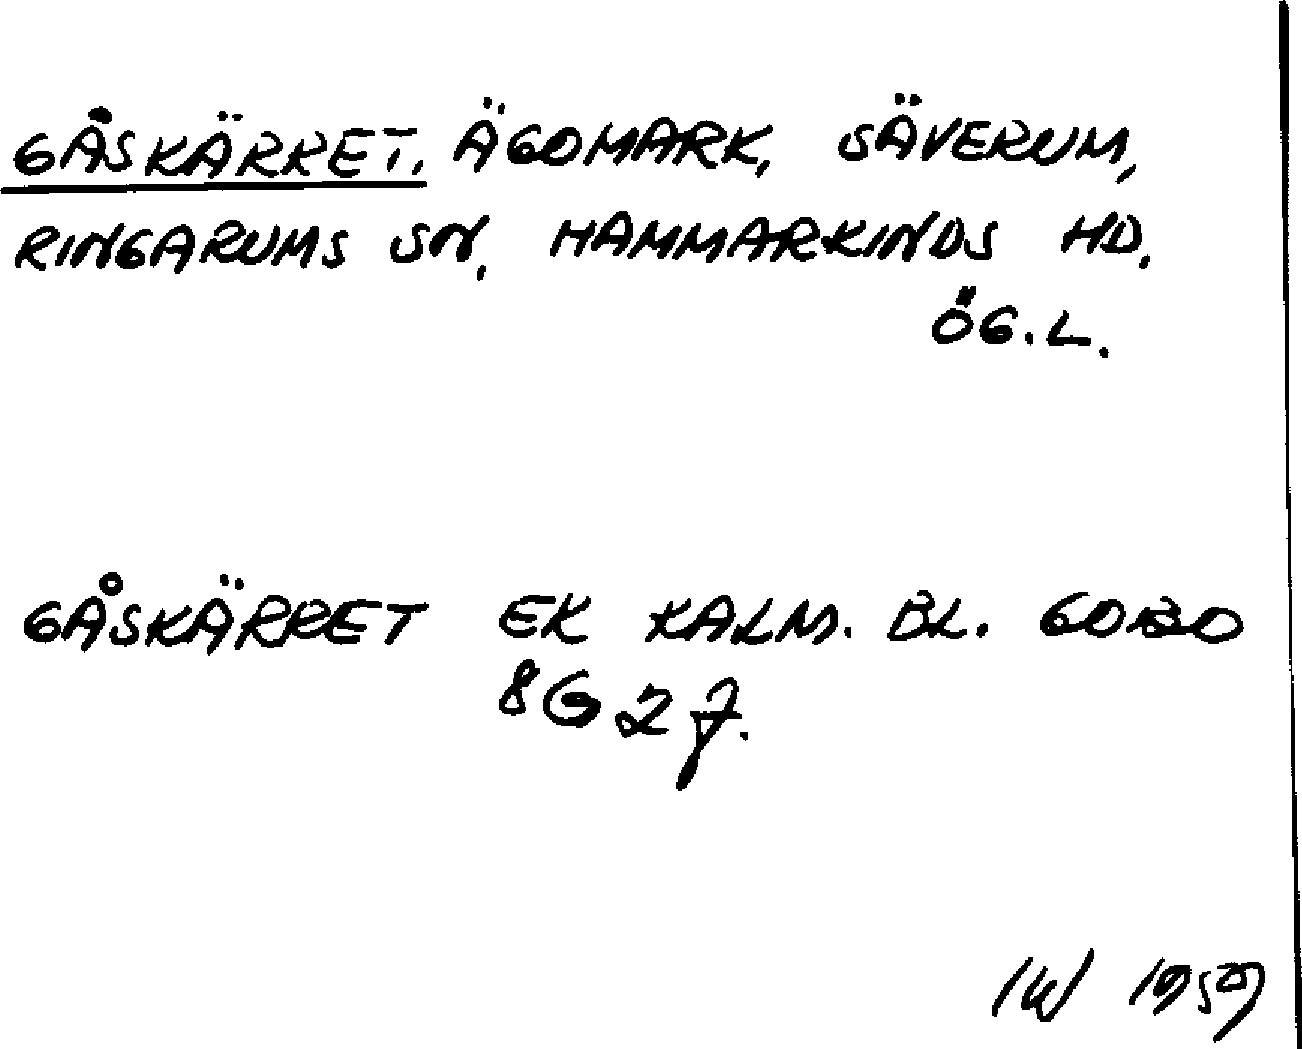 GÅSKÄRRET. ÄGOMARK, SÄVERUM,
RINGARUMS SN, HAMMARKINDS HD.
ÖG.L.
GÅSKÄRRET EK KALM. BL. GOBO
8G 2 f.
IW 1959